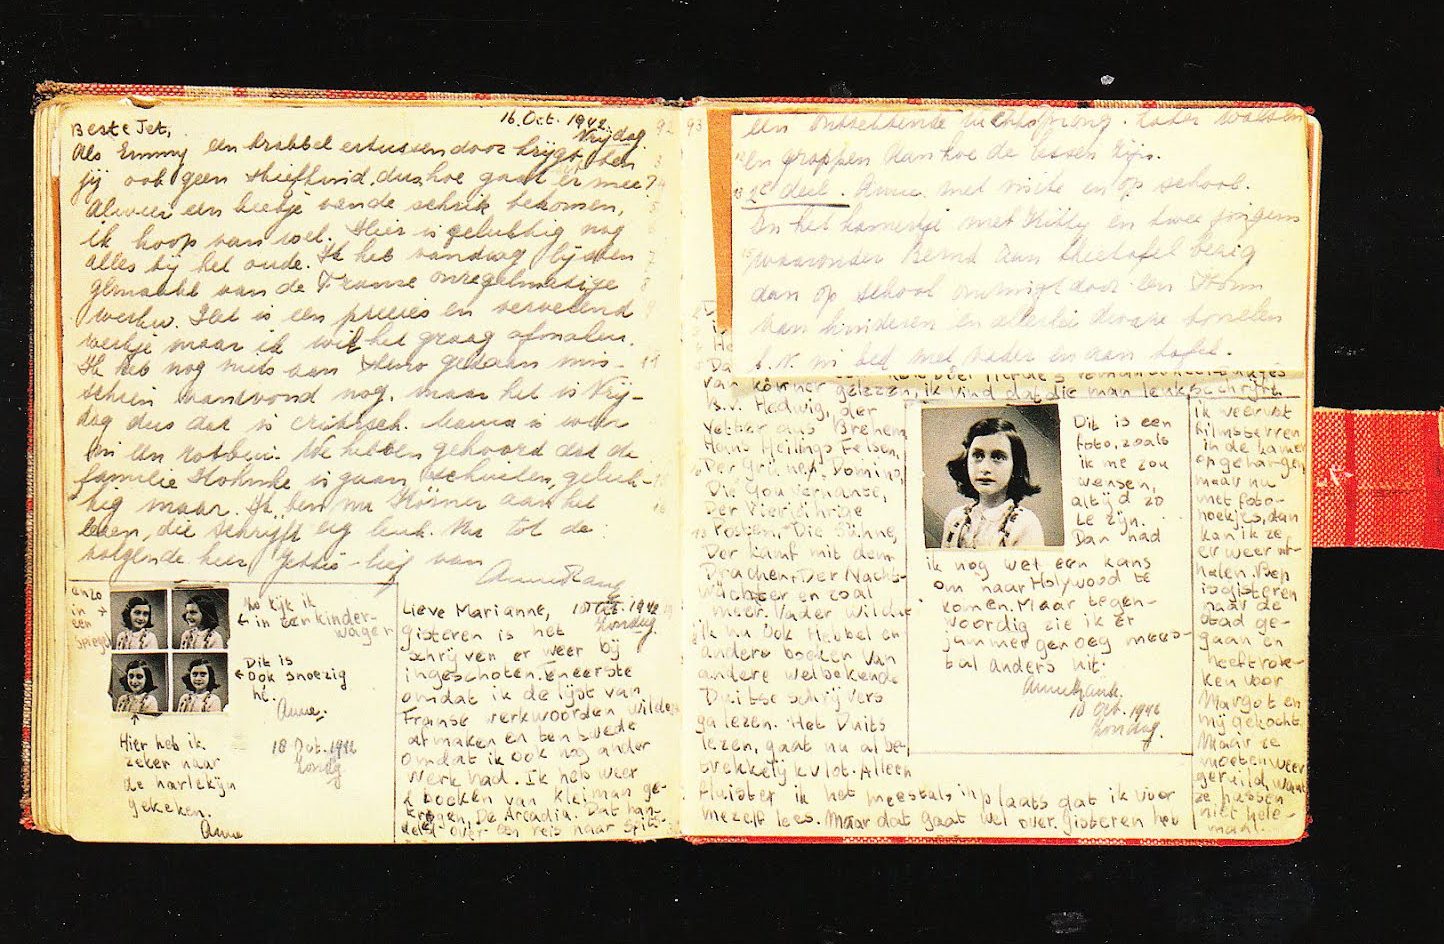 16 Oct. 1942
Vrijdag
Beste Jet,
Als Emmy een krabbel ertussendoor krijgt, ben
jij ook geen stiefkind, dus hoe gaat er mee?
Alweer een beetje van de schrik bekomen,
ik hoop van wel. Hier is gelukkig nog
alles bij het oude. Ik heb vandaag lijsten
gemaakt van de Franse onregelmatige
werkw. Het is een precies en vervelend
werkje maar ik wil het graag afmaken.
Ik heb nog niets aan steno gedaan mis-
schien vanavond nog, maar het is Vrij-
dag dus dat is critisch. Mama is weer
in een rotbui. We hebben gehoord dat de
familie is gaan schuilen, geluk-
kig maar. Ik ben nu Körner aan het
lezen, die schrijft erg leuk. Nu tot de
volgende keer Jettie-lief van
Anne Frank
enzo
in
een
spiegel
Nu kijk ik
in een kinder-
wagen
Dit is
ook snoezig
hé.
Anne.
Hier heb ik
zeker naar
de harlekijn
gekeken.
Anne
18 Oct. 1942
Zondag
Lieve Marianne,
18 Oct. 1942
Zondag.
Gisteren is het
schrijven er weer bij
ingeschoten. Teneerste
omdat ik de lijst van
Franse werkwoorden wilde
afmaken en ten tweede
omdat ik ook nog ander
werk had. Ik heb weer
2 boeken van Kleiman ge-
kregen, De Arcadia. Dat han-
delt over een reis naar Spits-
92 93
en
en grappen
2e deel. Anne met visite en op school.
In het kamertje met Kitty en twee jongens
waaronder Bernd aan theetafel bezig
dan op school omringt door een
van kinderen en allerlei
b.v. in bed met vader en aan tafel.
van Körner gelezen, ik vind dat die man leuk schrijft.
b.v. Hedwig, der
Vetter aus Bremen
Hans Heilings Felsen,
Der Grüne Domino,
Die Gouvernante,
Der Vierjährige
Posten, Die Sühne,
Der Kampf mit dem
Drachen, Der Nacht-
wächter en zoal
meer. Vader wilde
ik nu ook Hebbel en
andere boeken van
andere welbekende
Duitse schrijvers
ga lezen. Het Duits
lezen, gaat nu al be-
trekkelijk vlot. Alleen
fluister ik het meestals inplaats dat ik voor
mezelf lees. Maar dat gaat wel over. Gisteren heb
Dit is een
foto, zoals
ik me zou
wensen,
altijd zo
te zijn.
Dan had
ik nog wel een kans
om naar Holywood te
komen. Maar tegen-
woordig zie ik er
jammer genoeg mees-
tal anders uit.
Anne Frank.
18 Oct. 1942
Zondag.
ik weer wat
filmsterren
in de kamer
opgehangen
maar nu
met foto-
hoekjes, dan
kan ik ze
er weer uit-
halen. Bep
is gisteren
naar de
stad ge-
gaan en
heeft rok-
ken voor
Margot en
mij gekocht.
Maar ze
moeten weer
geruild, want
ze passen
niet hele-
maal.